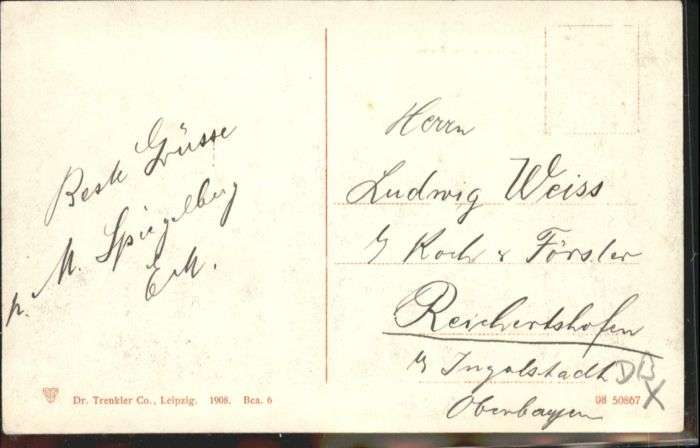 Beste Grüsse
p. M. Spiegelberg
Herrn
Ludwig Weiss
Koch & Förster
Reichertshofen
b/ Ingolstadt
Oberbayern
DB
X
Dr. Trenkler Co., Leipzig. 1908. Bca. 6
08 50867